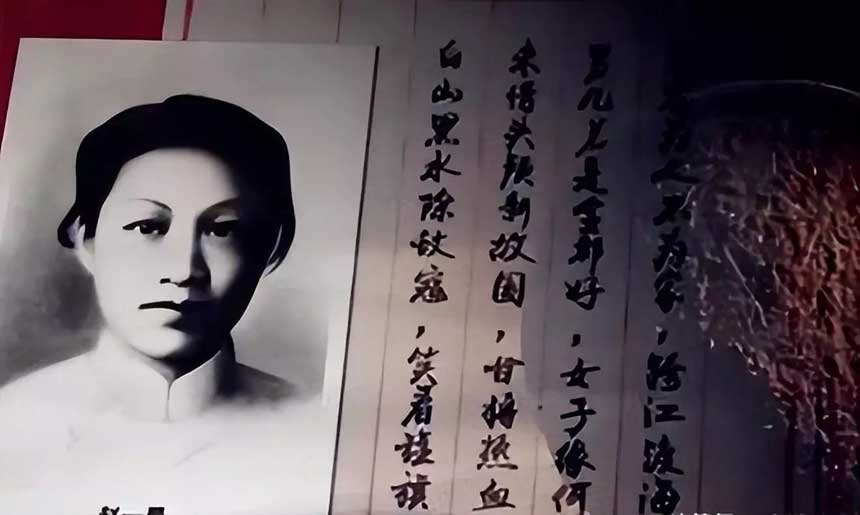 为人不为家，跨江渡海
男儿岂是全都好，女子缘何
未惜头颅新故国，甘将热血
白山黑水除敌寇，笑看旌旗